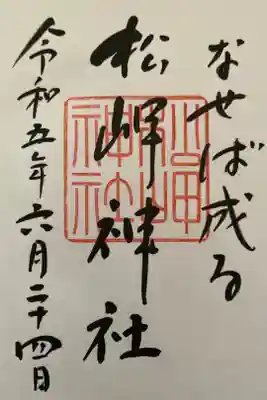 なせば成る
松岬神社
令和五年六月二十四日
松岬神社